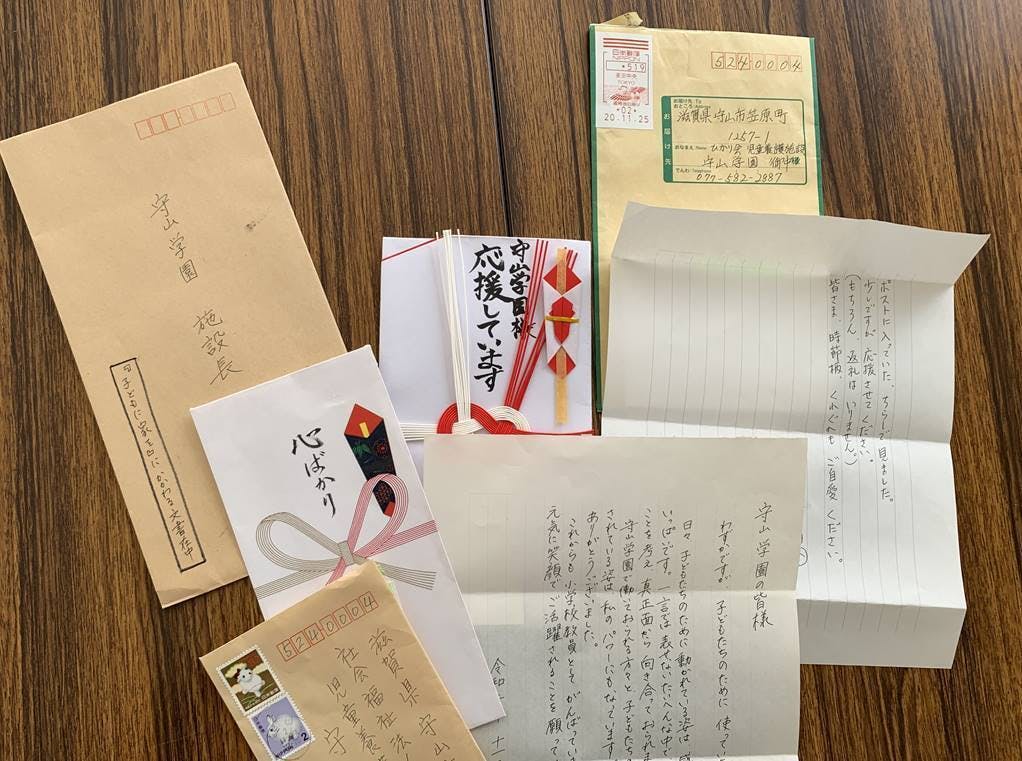 守山学園
施設長
子どもに家を凹にかかわる文書在中
守山学園様
応援しています
心ばかり
日本郵便
NIPPON
519
東京中央
TOKYO
02
20.11.25
5240004
お届け先
お届け先 To
おところ Address
滋賀県守山市笠原町
1257-1
おなまえ Name
ひかり会 児童養護施設
守山学園 御中様
でんわ Telephone
077-582-2887
ポストに入っていた、ちらしで見ました。
少しですが応援させてください。
(もちろん、返礼はいりません。)
皆さま、時節柄、くれぐれも ご自愛ください。
守山学園の皆様
わずかですが 子どもたちのために 使ってい
日々 子どもたちのために動かれている姿は 感
いっぱいです。一言では 表せないたいへんな中で
ことを考え 真正面から向き合っておられま
守山学園で働いておられる方々と、子どもたち
されている姿は 私の パワーにもなっています
ありがとうございました。
これからも 小学校教員として がんばってい
元気に笑顔で ご活躍されることを願って
令和
十一
5240004
滋賀県 守山
社会福祉法
児童養
守
NIPPON
2